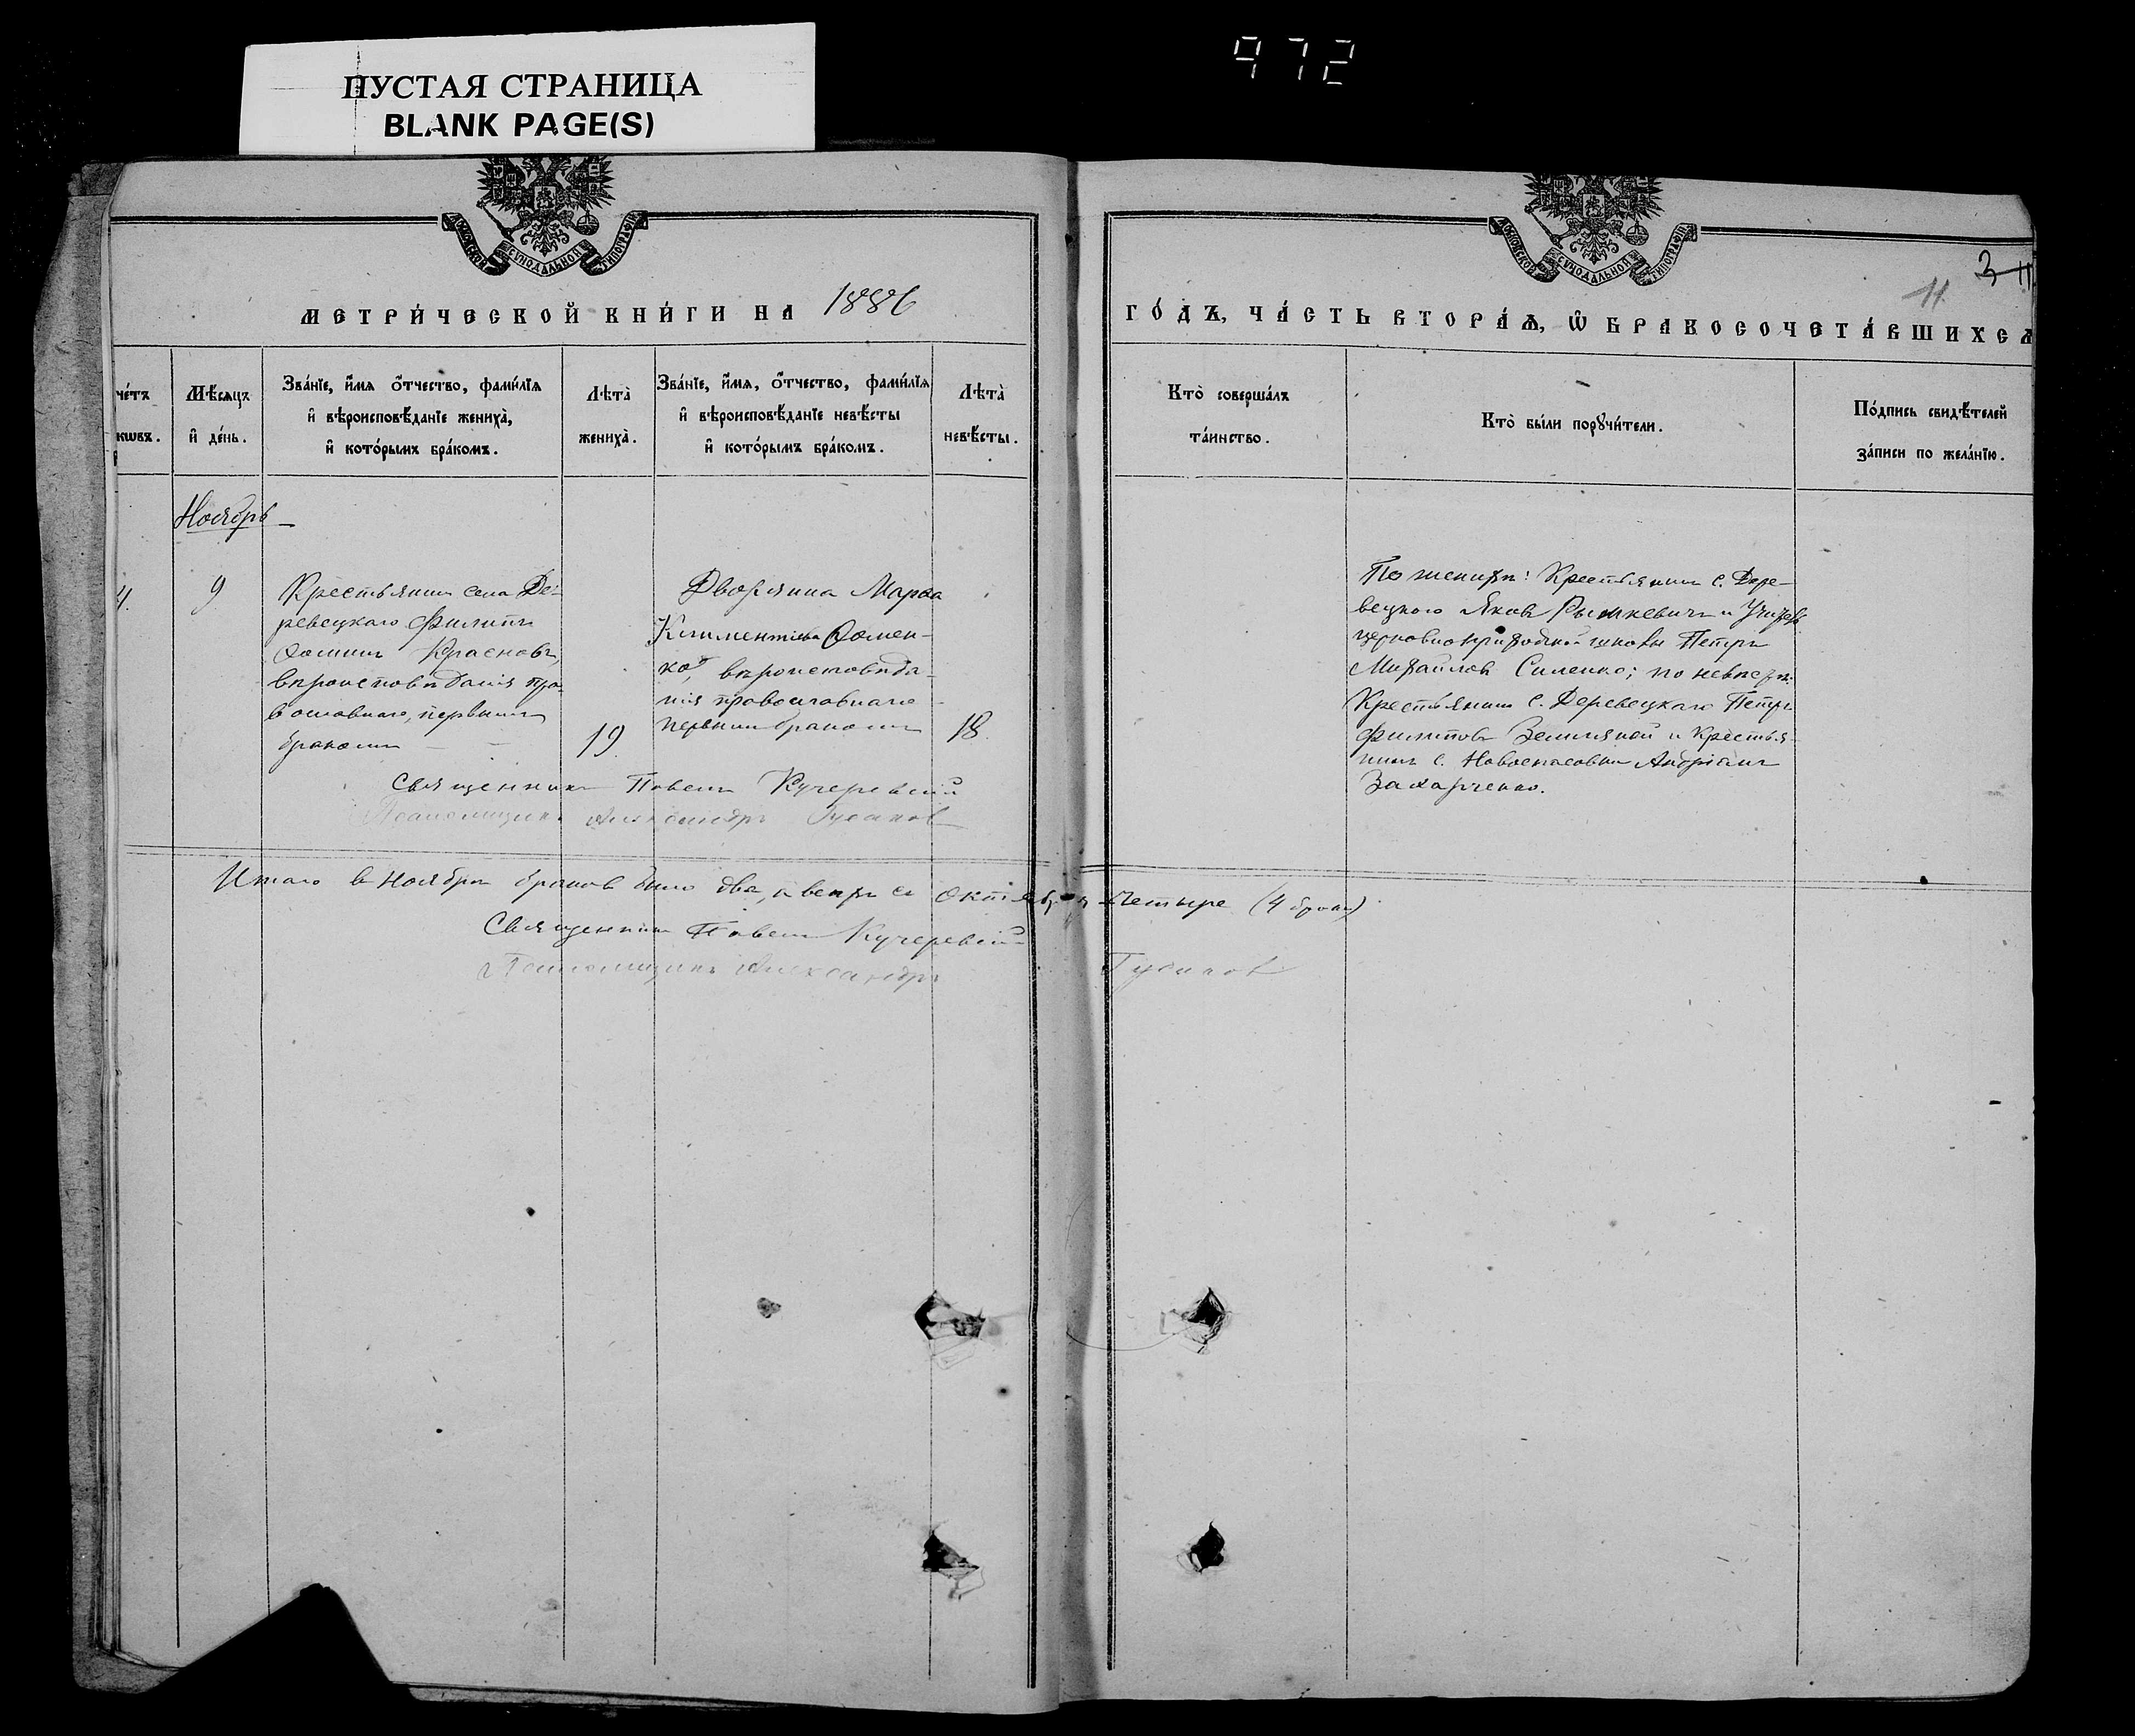 ПУСТАЯ СТРАНИЦА
BLANK PAGE(S)
972
МОСКОВСКОЙ СУНОДАЛЬНОЙ ТИПОГРАФІИ
МОСКОВСКОЙ СУНОДАЛЬНОЙ ТИПОГРАФІИ
3 11
11.
МЕТРИ́ЧЕСКОЙ КНИ́ГИ НА 1886
ГО́ДЪ, ЧА́СТЬ ВТОРА́Ѧ, Ѽ БРАКОСОЧЕТА́ВШИХСѦ
че́тъ
кѡвъ.
Мѣ́сѧцъ
и҆ де́нь.
Зва́нїе, и҆́мѧ ѻ҆́тчество, фами́лїѧ
и҆ вѣроисповѣ́данїе жениха̀,
и҆ кото́рымъ бра́комъ.
Лѣта̀
жениха̀.
Зва́нїе, и҆́мѧ, ѻ҆́тчество, фами́лїѧ
и҆ вѣроисповѣ́данїе невѣ́сты
и҆ кото́рымъ бра́комъ.
Лѣта̀
невѣ́сты.
Кто̀ соверша́лъ
та́инство.
Кто̀ бы́ли порꙋчи́тели.
По́дпись свидѣ́телей
за́писи по жела́нїю.
Ноябрь
4.
9
Крестьянинъ села Де-
ревецкаго Филиппъ
Ѳоминъ Красновъ,
вѣроисповѣданія пра-
вославнаго, первымъ
бракомъ
19.
Дворянка Марѳа
Климентіева Ѳомен-
ко, вѣроисповѣда-
нія православнаго
первымъ бракомъ
18.
По женихѣ: Крестьянинъ с. Дере-
вецкаго Яковъ Рымкевичъ и Учитель
церковноприходской школы Петръ
Михайловъ Силенко; по невѣстѣ:
Крестьянинъ с. Деревецкаго Петръ
Филиповъ Земляной и Крестья-
нинъ с. Новоспасовки Андріанъ
Захарченко.
Священникъ Павелъ Кучеревскій
Псаломщикъ Александръ Гусаковъ
Итого въ Ноябрѣ браковъ было два, а всѣхъ съ Октябремъ четыре (4 брака).
Священникъ Павелъ Кучеревскій
Псаломщикъ Александръ Гусаковъ